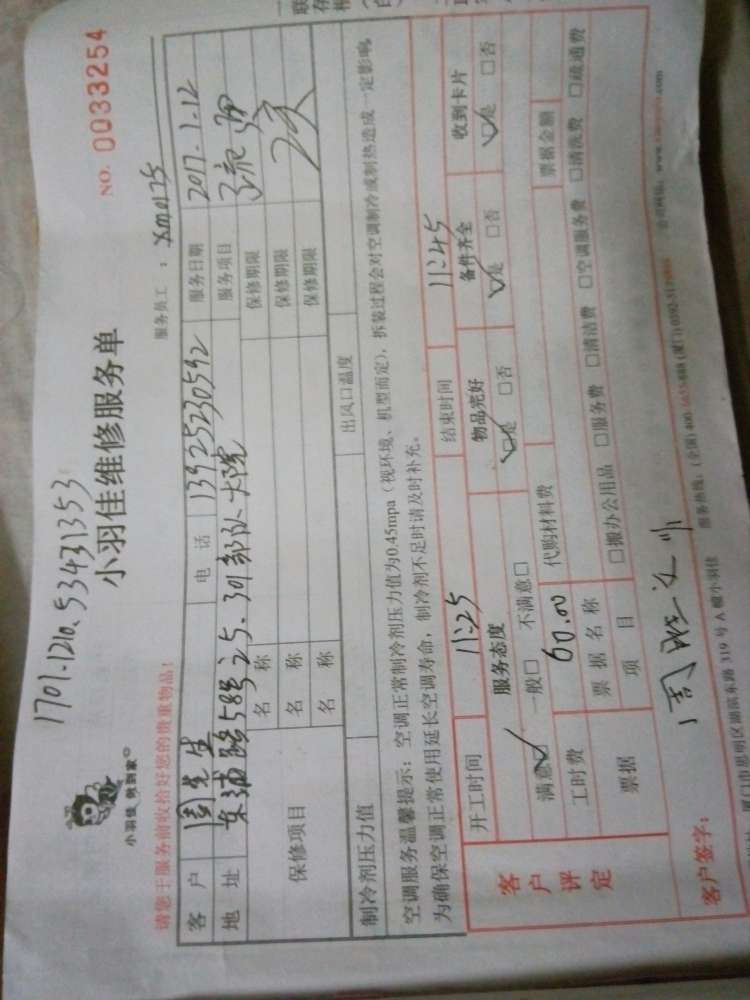 1701-1210.53431353
小羽佳维修服务单
NO. 0033254
小羽佳 快到家
请您于服务前收拾好您的贵重物品！
服务员工： Xm0175
客户 周先生 电话 13925230592 服务日期 2017-1-12
地址 东浦路58号25.301部队大院 服务项目
保修项目
名称 保修期限
名称 保修期限
名称 保修期限
制冷剂压力值 出风口温度
空调服务温馨提示：空调正常制冷剂压力值为0.45mpa（视环境、机型而定），拆装过程会对空调制冷或制热造成一定影响，
为确保空调正常使用延长空调寿命，制冷剂不足时请及时补充。
客户评定
开工时间 11:25 结束时间 11:45
服务态度 物品完好 备件齐全 收到卡片
满意☑ 一般□ 不满意□ ☑是 □否 ☑是 □否 ☑是 □否
工时费 60.00 代购材料费 票据金额
票据 票据名称
项目 □搬办公用品 □服务费 □清洁费 □空调服务费 □清洗费 □疏通费
客户签字：
厦门市思明区湖滨东路 319 号 A 幢小羽佳 服务热线：(全国) 400 (厦门) 0592 公司网站：www. .com